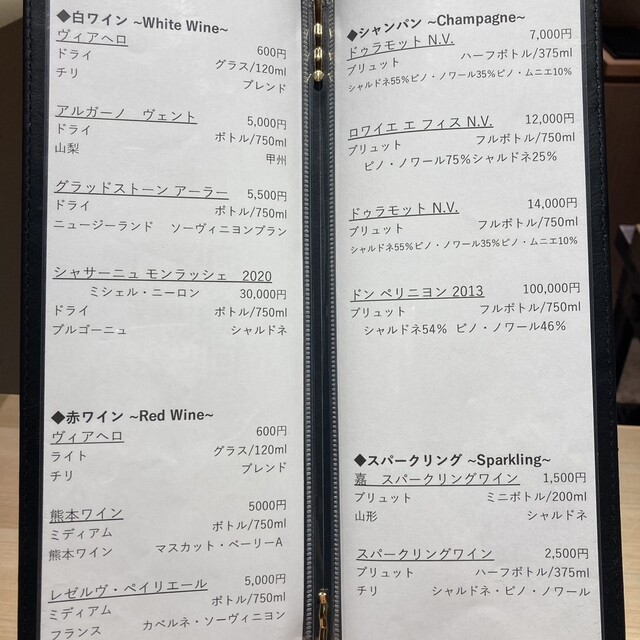 ◆白ワイン ~White Wine~
ヴィアヘロ 600円
ドライ グラス/120ml
チリ ブレンド
アルガーノ ヴェント 5,000円
ドライ ボトル/750ml
山梨 甲州
グラッドストーン アーラー 5,500円
ドライ ボトル/750ml
ニュージーランド ソーヴィニヨンブラン
シャサーニュ モンラッシェ 2020
ミシェル・ニーロン 30,000円
ドライ ボトル/750ml
ブルゴーニュ シャルドネ
◆赤ワイン ~Red Wine~
ヴィアヘロ 600円
ライト グラス/120ml
チリ ブレンド
熊本ワイン 5000円
ミディアム ボトル/750ml
熊本ワイン マスカット・ベーリーA
レゼルヴ・ペイリエール 5,000円
ミディアム ボトル/750ml
フランス カベルネ・ソーヴィニヨン
◆シャンパン ~Champagne~
ドゥラモット N.V. 7,000円
ブリュット ハーフボトル/375ml
シャルドネ55%ピノ・ノワール35%ピノ・ムニエ10%
ロワイエ エ フィス N.V. 12,000円
ブリュット フルボトル/750ml
ピノ・ノワール75%シャルドネ25%
ドゥラモット N.V. 14,000円
ブリュット フルボトル/750ml
シャルドネ55%ピノ・ノワール35%ピノ・ムニエ10%
ドン ペリニヨン 2013 100,000円
ブリュット フルボトル/750ml
シャルドネ54% ピノ・ノワール46%
◆スパークリング ~Sparkling~
嘉 スパークリングワイン 1,500円
ブリュット ミニボトル/200ml
山形 シャルドネ
スパークリングワイン 2,500円
ブリュット ハーフボトル/375ml
チリ シャルドネ・ピノ・ノワール